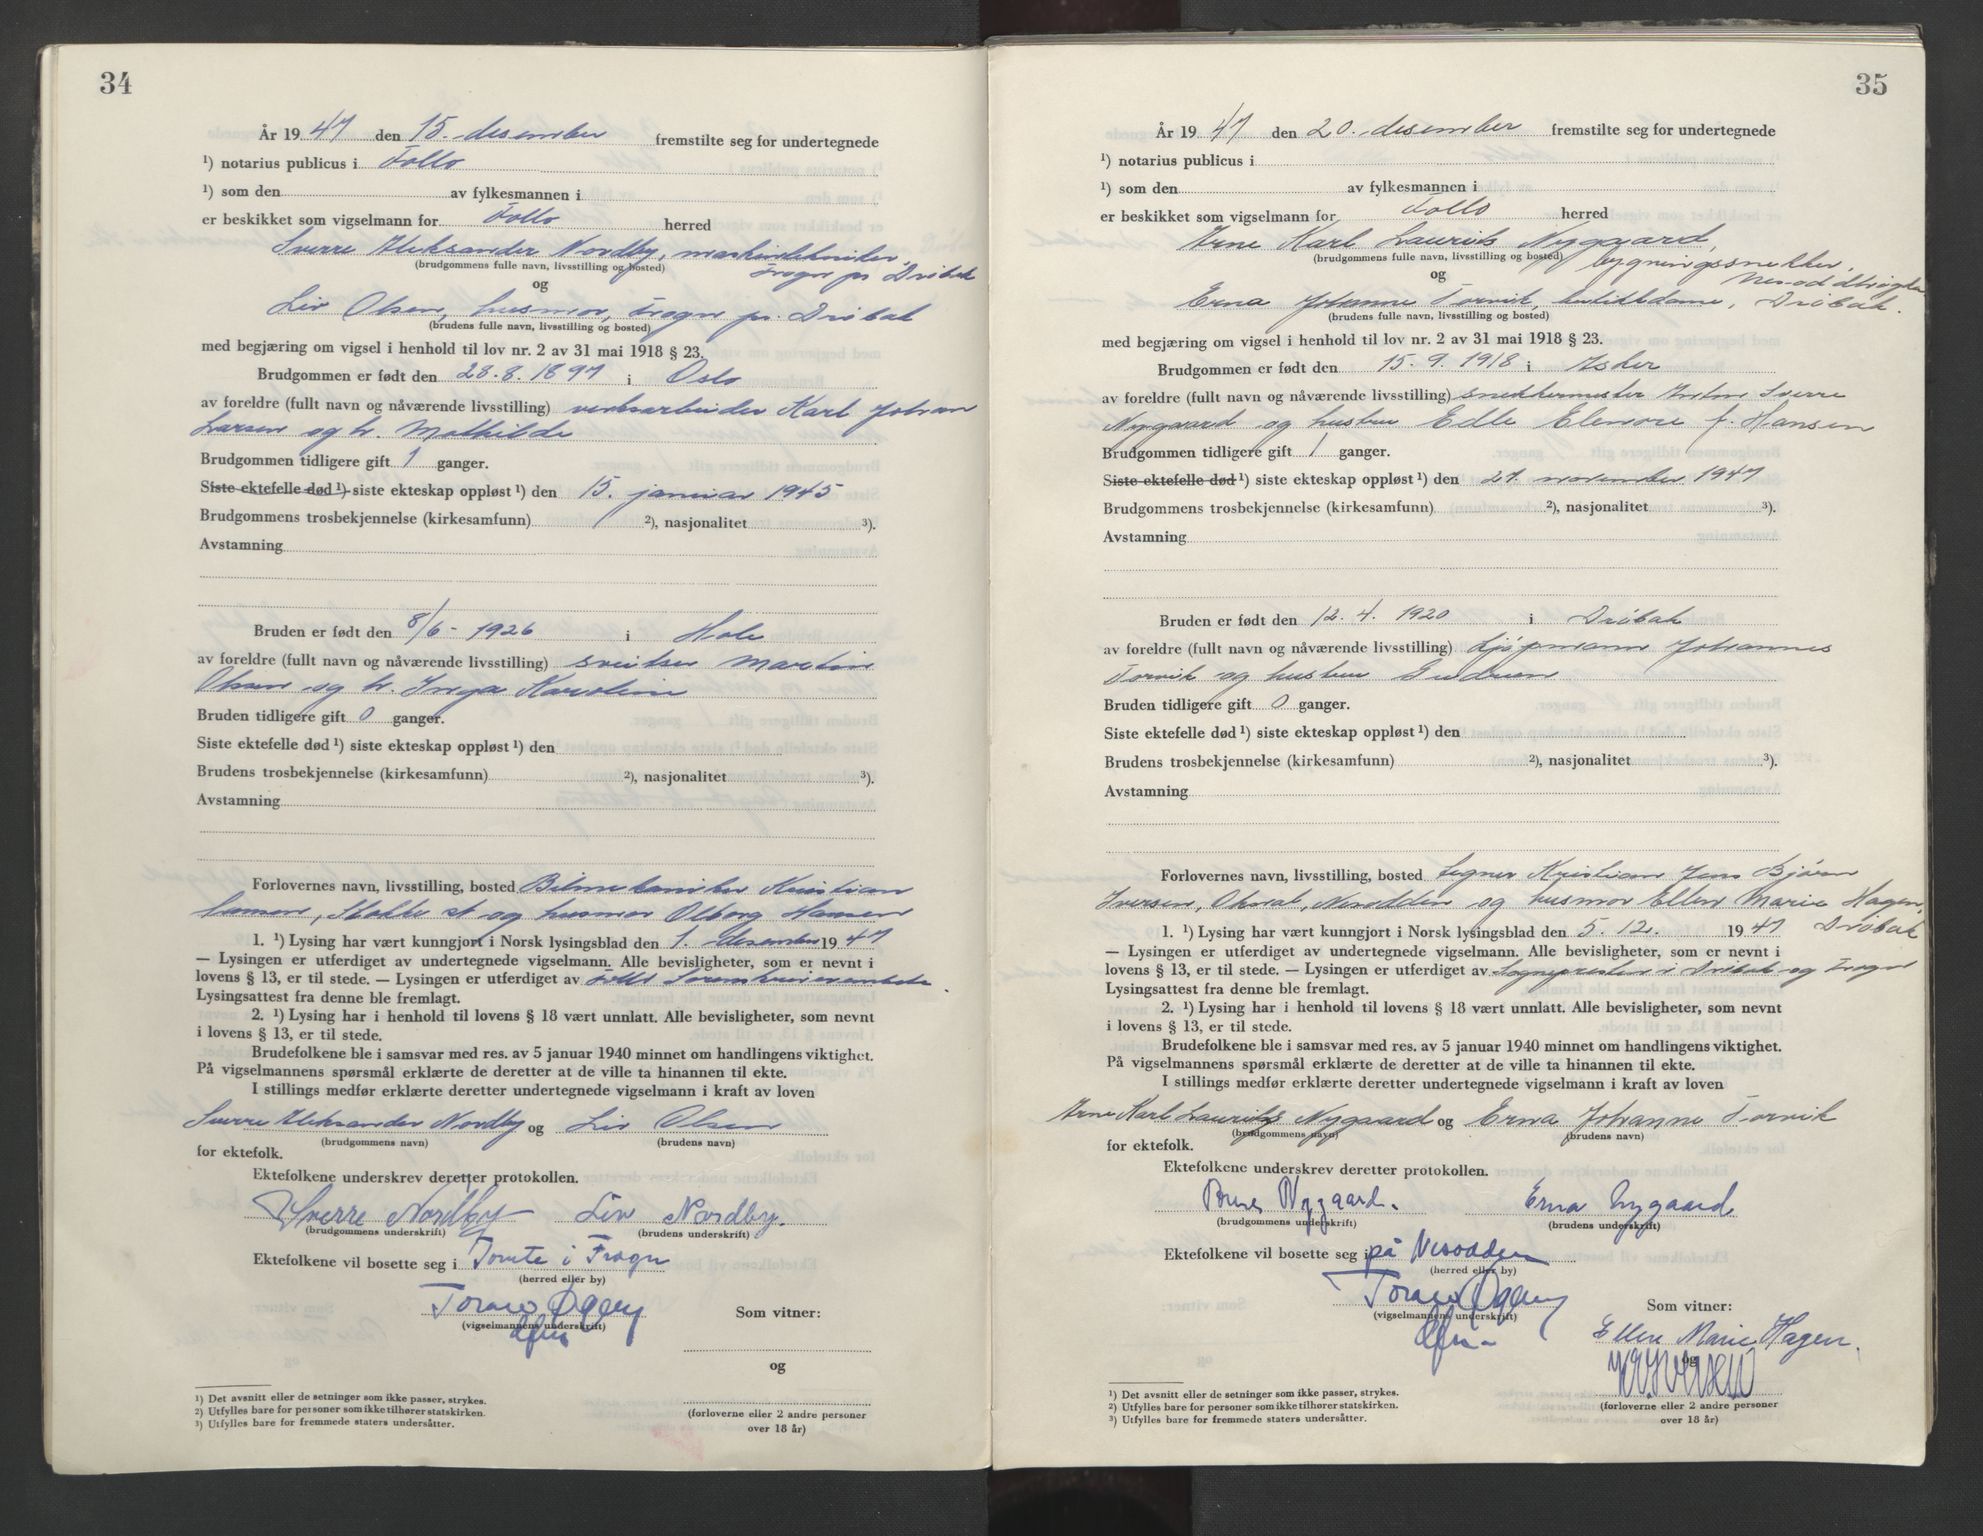 34
År 1947 den 15. desember fremstilte seg for undertegnede
¹) notarius publicus i Follo
¹) som den av fylkesmannen i
er beskikket som vigselmann for Follo herred
Sverre Aleksander Nordby, maskintekniker,
(brudgommens fulle navn, livsstilling og bosted) Frogn pr Drøbak
og
Liv Olsen, husmor, Frogn pr. Drøbak
(brudens fulle navn, livsstilling og bosted)
med begjæring om vigsel i henhold til lov nr. 2 av 31 mai 1918 § 23.
Brudgommen er født den 28.8.1897 i Oslo
av foreldre (fullt navn og nåværende livsstilling) verksarbeider Karl Johan
Larsen og h. Mathilde
Brudgommen tidligere gift 1 ganger.
Siste ektefelle død ¹) siste ekteskap oppløst ¹) den 15. januar 1945
Brudgommens trosbekjennelse (kirkesamfunn) ²), nasjonalitet ³).
Avstamning
Bruden er født den 8/6 - 1926 i Hole
av foreldre (fullt navn og nåværende livsstilling) sveitser Martin
Olsen og h. Inga Karoline
Bruden tidligere gift 0 ganger.
Siste ektefelle død ¹) siste ekteskap oppløst ¹) den
Brudens trosbekjennelse (kirkesamfunn) ²), nasjonalitet ³).
Avstamning
Forlovernes navn, livsstilling, bosted Bilmekaniker Kristian
st og husmor Olborg Hansen
1. ¹) Lysing har vært kunngjort i Norsk lysingsblad den 1. desember 1947
— Lysingen er utferdiget av undertegnede vigselmann. Alle bevisligheter, som er nevnt i
lovens § 13, er til stede. — Lysingen er utferdiget av Follo Sorenskriverembede.
Lysingsattest fra denne ble fremlagt.
2. ¹) Lysing har i henhold til lovens § 18 vært unnlatt. Alle bevisligheter, som nevnt
i lovens § 13, er til stede.
Brudefolkene ble i samsvar med res. av 5 januar 1940 minnet om handlingens viktighet.
På vigselmannens spørsmål erklærte de deretter at de ville ta hinannen til ekte.
I stillings medfør erklærte deretter undertegnede vigselmann i kraft av loven
Sverre Aleksander Nordby og Liv Olsen
(brudgommens navn) (brudens navn)
for ektefolk.
Ektefolkene underskrev deretter protokollen.
Sverre Nordby Liv Nordby.
(brudgommens underskrift) (brudens underskrift)
Ektefolkene vil bosette seg i Tomte i Frogn
(herred eller by)
Som vitner:
(vigselmannens underskrift)
og
¹) Det avsnitt eller de setninger som ikke passer, strykes.
²) Utfylles bare for personer som ikke tilhører statskirken.
³) Utfylles bare for fremmede staters undersåtter.
(forloverne eller 2 andre personer
over 18 år)
35
År 1947 den 20. desember fremstilte seg for undertegnede
¹) notarius publicus i
¹) som den av fylkesmannen i
er beskikket som vigselmann for Follo herred
Arne Karl Laurits Nygaard,
(brudgommens fulle navn, livsstilling og bosted) bygningssnekker,
og
Erna Johanne Torvik, butikkdame, Drøbak.
(brudens fulle navn, livsstilling og bosted)
med begjæring om vigsel i henhold til lov nr. 2 av 31 mai 1918 § 23.
Brudgommen er født den 15.9.1918 i Asker
av foreldre (fullt navn og nåværende livsstilling) snekkermester Anton Sverre
Nygaard og hustru Edle Elenore f. Hansen
Brudgommen tidligere gift 1 ganger.
Siste ektefelle død ¹) siste ekteskap oppløst ¹) den 27. november 1947
Brudgommens trosbekjennelse (kirkesamfunn) ²), nasjonalitet ³).
Avstamning
Bruden er født den 12.4.1920 i Drøbak
av foreldre (fullt navn og nåværende livsstilling) kjøpmann Johannes
Torvik og hustru Gudrun
Bruden tidligere gift 0 ganger.
Siste ektefelle død ¹) siste ekteskap oppløst ¹) den
Brudens trosbekjennelse (kirkesamfunn) ²), nasjonalitet ³).
Avstamning
Forlovernes navn, livsstilling, bosted Tegner Kristian Jens Bjørn
Iversen, Oksval, Nesodden og husmor Ellen Marie Hagen,
1. ¹) Lysing har vært kunngjort i Norsk lysingsblad den 5.12. 1947 Drøbak
— Lysingen er utferdiget av undertegnede vigselmann. Alle bevisligheter, som er nevnt i
lovens § 13, er til stede. — Lysingen er utferdiget av Sognepresten i Drøbak og Frogn
Lysingsattest fra denne ble fremlagt.
2. ¹) Lysing har i henhold til lovens § 18 vært unnlatt. Alle bevisligheter, som nevnt
i lovens § 13, er til stede.
Brudefolkene ble i samsvar med res. av 5 januar 1940 minnet om handlingens viktighet.
På vigselmannens spørsmål erklærte de deretter at de ville ta hinannen til ekte.
I stillings medfør erklærte deretter undertegnede vigselmann i kraft av loven
Arne Karl Laurits Nygaard og Erna Johanne Torvik
(brudgommens navn) (brudens navn)
for ektefolk.
Ektefolkene underskrev deretter protokollen.
Arne Nygaard. Erna Nygaard
(brudgommens underskrift) (brudens underskrift)
Ektefolkene vil bosette seg i på Nesodden
(herred eller by)
Som vitner:
(vigselmannens underskrift)
Ellen Marie Hagen.
og
¹) Det avsnitt eller de setninger som ikke passer, strykes.
²) Utfylles bare for personer som ikke tilhører statskirken.
³) Utfylles bare for fremmede staters undersåtter.
(forloverne eller 2 andre personer
over 18 år)